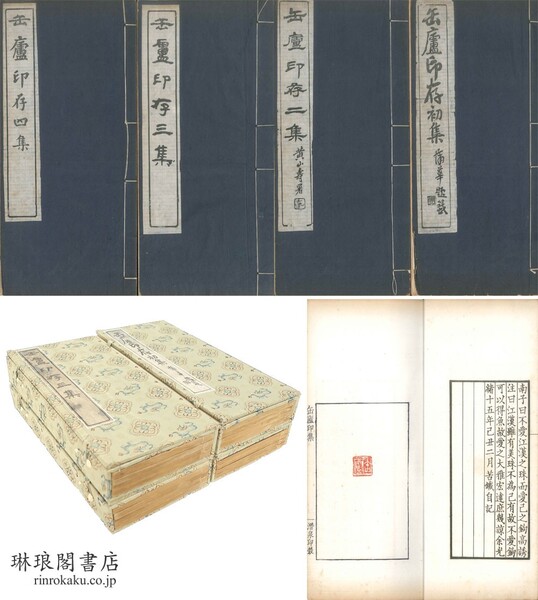 缶廬印存初集
蒲華題籤
缶廬印存二集
黃山壽署
缶廬印存三集
缶廬印存四集
南子曰不愛江漢之珠而愛己之鉤高誘
注曰江漢雖有美珠不為己有故不愛鉤
可以得魚故愛之大雅宏達庶幾諒余光
緒十五年己丑二月苦鐵自記
缶廬印集
潛泉印叢
琳琅閣書店
rinrokaku.co.jp